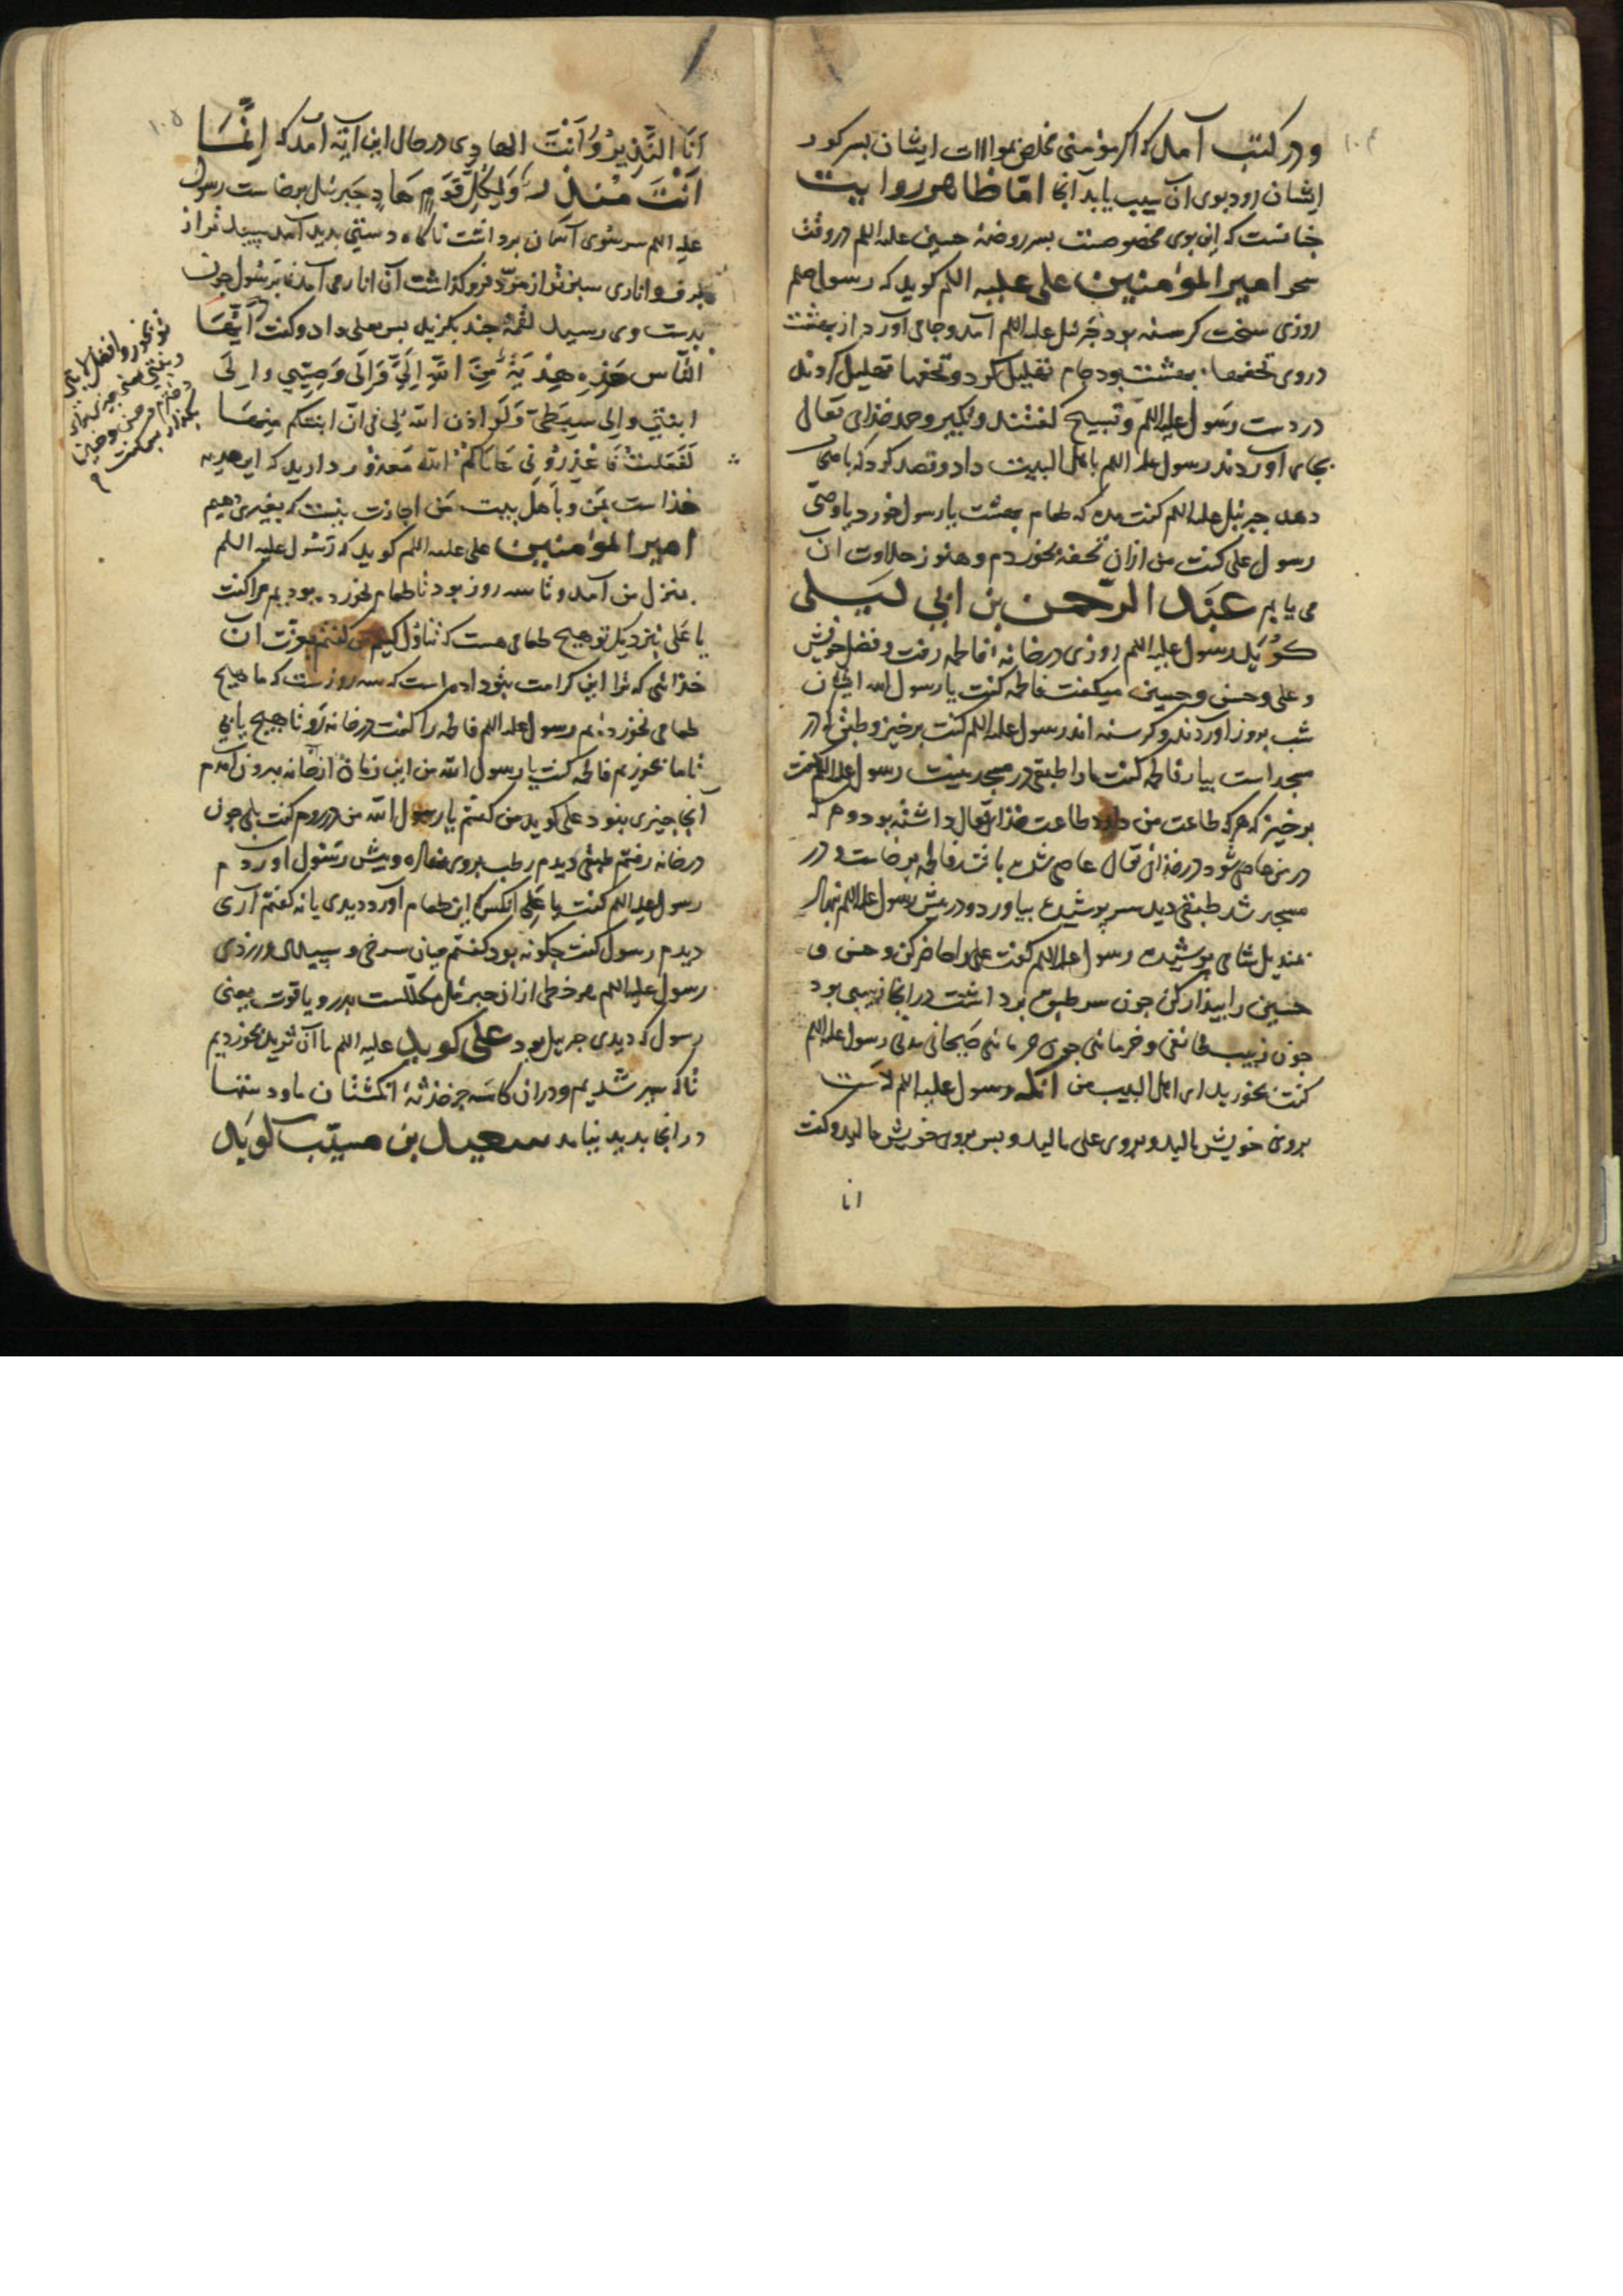 و در کتب آمد که اگر مؤمنی مخلص بموالات ایشان بسر کور
ایشان رود بوی آن سیب یابد آنجا اما ظاهر روایت
چنانست که این بوی مخصوصست بسر روضهٔ حسین علیه اللم در وقت
سحر امیر المؤمنین علی علیه اللم کوید که رسول صلم
روزی سخت کرسنه بود جبرئل علیه اللم آمد و جامی آورد از بهشت
در وی تحفهاء بهشت بود جام تهلیل کرد و تحفها تهلیل کردند
در دست رسول علیه اللم و تسبیح کفتند و تکبیر و حمد خذای تعالی
بجای آوردند رسول علیه اللم باهل البیت داد و قصد کرد که باصحاب
دهد جبرئیل علیه اللم کفت مده که طعام بهشت یا رسول خورد یا وصی
رسول علی کفت من از ان تحفه بخوردم و هنوز حلاوت آن
می یابم عبد الرحمن بن ابی لیلی
کوید رسول علیه اللم روزی در خانهٔ فاطمه رفت و فضل خویش
و علی و حسن و حسین میکفت فاطمه کفت یا رسول الله ایشان
شب بروز آوردند و کرسنه اند رسول علیه اللم کفت برخیز و طبقی در
مسجد است بیار فاطمه کفت ما را طبقی در مسجد نیست رسول علیه اللم کفت
برخیز که هرکه طاعت من دارد طاعت خذای تعالی داشته بود و هر که
در من عاصی شود در خذای تعالی عاصی شده باشد فاطمه برخاست و در
مسجد شد طبقی دید سر پوشیده بیاورد و در پیش رسول علیه اللم نهاد
بمندیل شامی پوشیده رسول علیه اللم کفت علی را حاضر کن و حسن و
حسین را بیدار کن چون سر طبق برداشت در آنجا زبیبی بود
چون زبیب طائفی و خرمائی چون خرمائی صیحانی مدنی رسول علیه اللم
کفت بخورید ای اهل البیت من آنکه رسول علیه اللم دست
بروی خویش مالید و بروی علی مالید و پس بروی خویش مالید و کفت
انا
انا النذیر و انت الهادی در حال این آیه آمد که انما
انت منذر ولکل قوم هاد جبرئیل برخاست رسول
علیه اللم سر سوی آسمان برداشت ناکاه دستی بدید آمد سپیدتر از
برف و اناری سبزتر از زمرد فرو کذاشت آن انار می آمد تا برسول چون
بدست وی رسید لقمهٔ چند بکزید پس بعلی داد و کفت ایها
الناس هذه هدیة من الله الی و الی وصیی و الی
ابنتی و الی سبطی و لو اذن الله لی فی ان ابنئکم منها
لفعلت فاعذرونی عافاکم الله معذور دارید که این هدیه
خذاست بمن و باهل بیت من اجازت نیست که بغیری دهیم
امیر المؤمنین علی علیه اللم کوید که رسول علیه اللم
بمنزل من آمد و تا سه روز بود تا طعام نخورده بودیم مرا کفت
یا علی نزدیک تو هیچ طعامی هست که تناول کنیم من کفتم بعزت آن
خذائی که ترا این کرامت بتو داده است که سه روزست که ما هیچ
طعامی نخورده‌ایم رسول علیه اللم فاطمه را کفت در خانه رو تا هیچ یابی
تا ما بخوریم فاطمه کفت یا رسول الله من این زمان از خانه بیرون آمدم
آنجا چیزی نبود علی کوید من کفتم یا رسول الله من در روم کفت بلی چون
در خانه رفتم طبقی دیدم رطب بروی نهاده و پیش رسول آوردم
رسول علیه اللم کفت یا علی آنکس که این طعام آورد دیدی یا نه کفتم آری
دیدم رسول کفت چکونه بود کفتم میان سرخی و سپیدی و زردی
رسول علیه اللم هر خطی از از جبرئل مکللست بدر و یاقوت یعنی
رسول که دیدی جبریل بود علی کوید علیه اللم ما آن ثرید بخوردیم
تا که سیر شدیم و در آن کاسه جز خذشهٔ انکشتان ما و دستها
در آنجا بدید نیامد سعید بن مسیب کوید